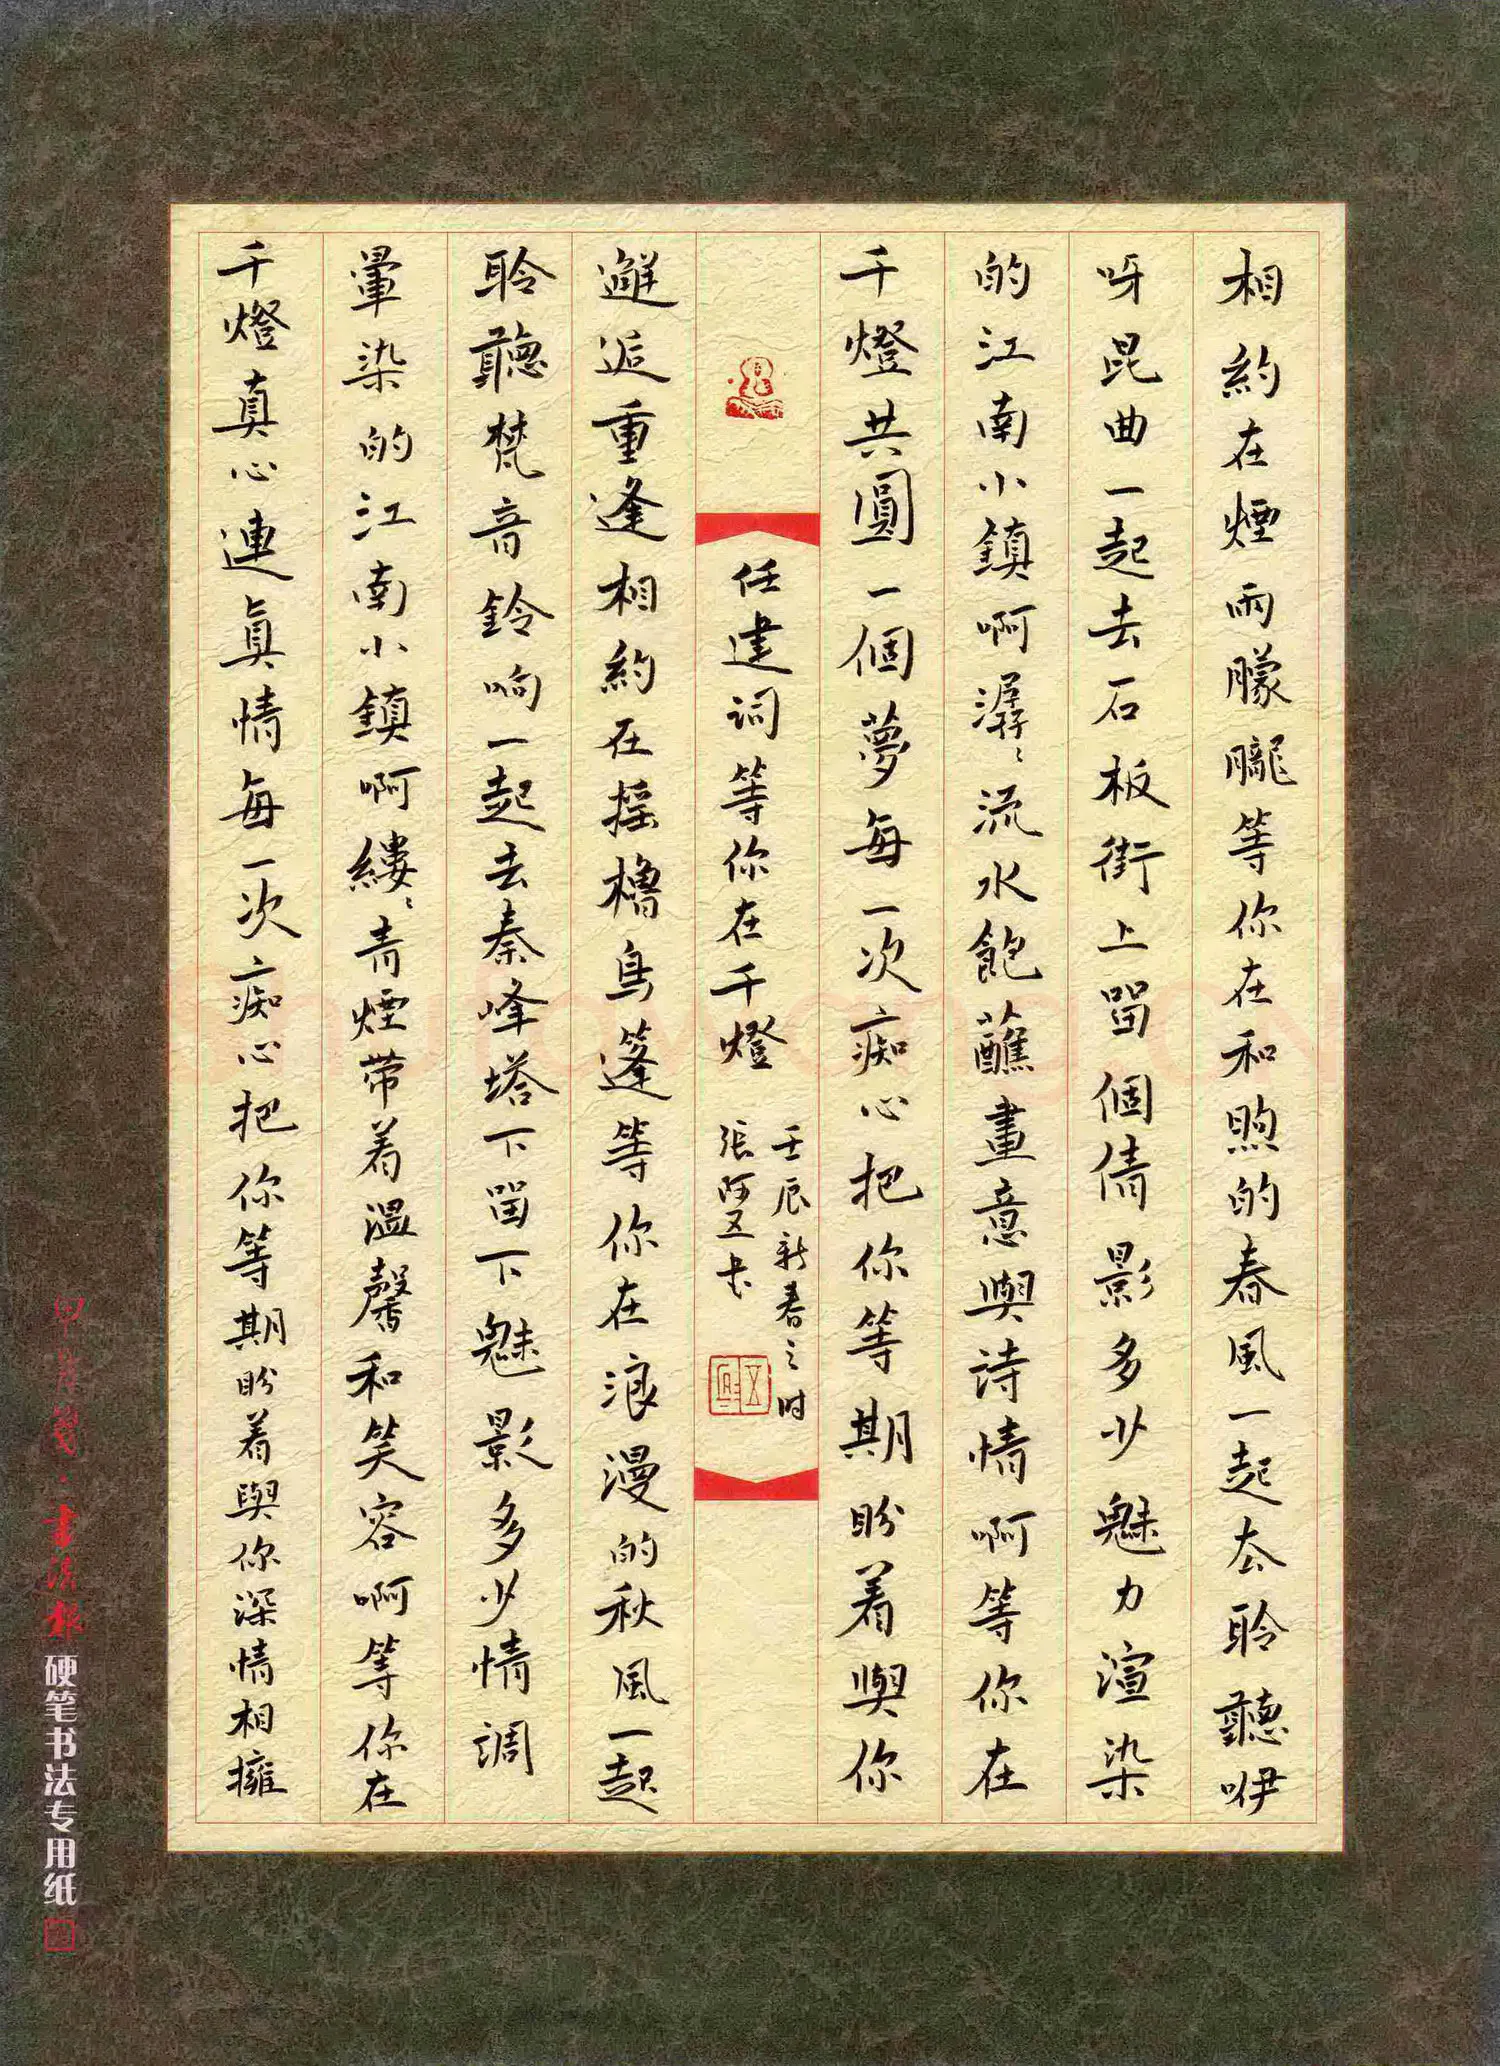 相約在煙雨朦朧等你在和煦的春風一起去聆聽咿
呀昆曲一起去石板街上留個倩影多少魅力渲染
的江南小鎮啊潺〻流水飽蘸畫意與詩情啊等你在
千燈共圓一個夢每一次痴心把你等期盼着與你
任建詞等你在千燈
壬辰新春之时
張阿五书
邂逅重逢相約在摇櫓烏篷等你在浪漫的秋風一起
聆聽梵音鈴响一起去秦峰塔下留下魅影多少情調
暈染的江南小鎮啊縷〻青煙带着温馨和笑容啊等你在
千燈真心連真情每一次痴心把你等期盼着與你深情相擁
書法報
硬笔书法专用纸